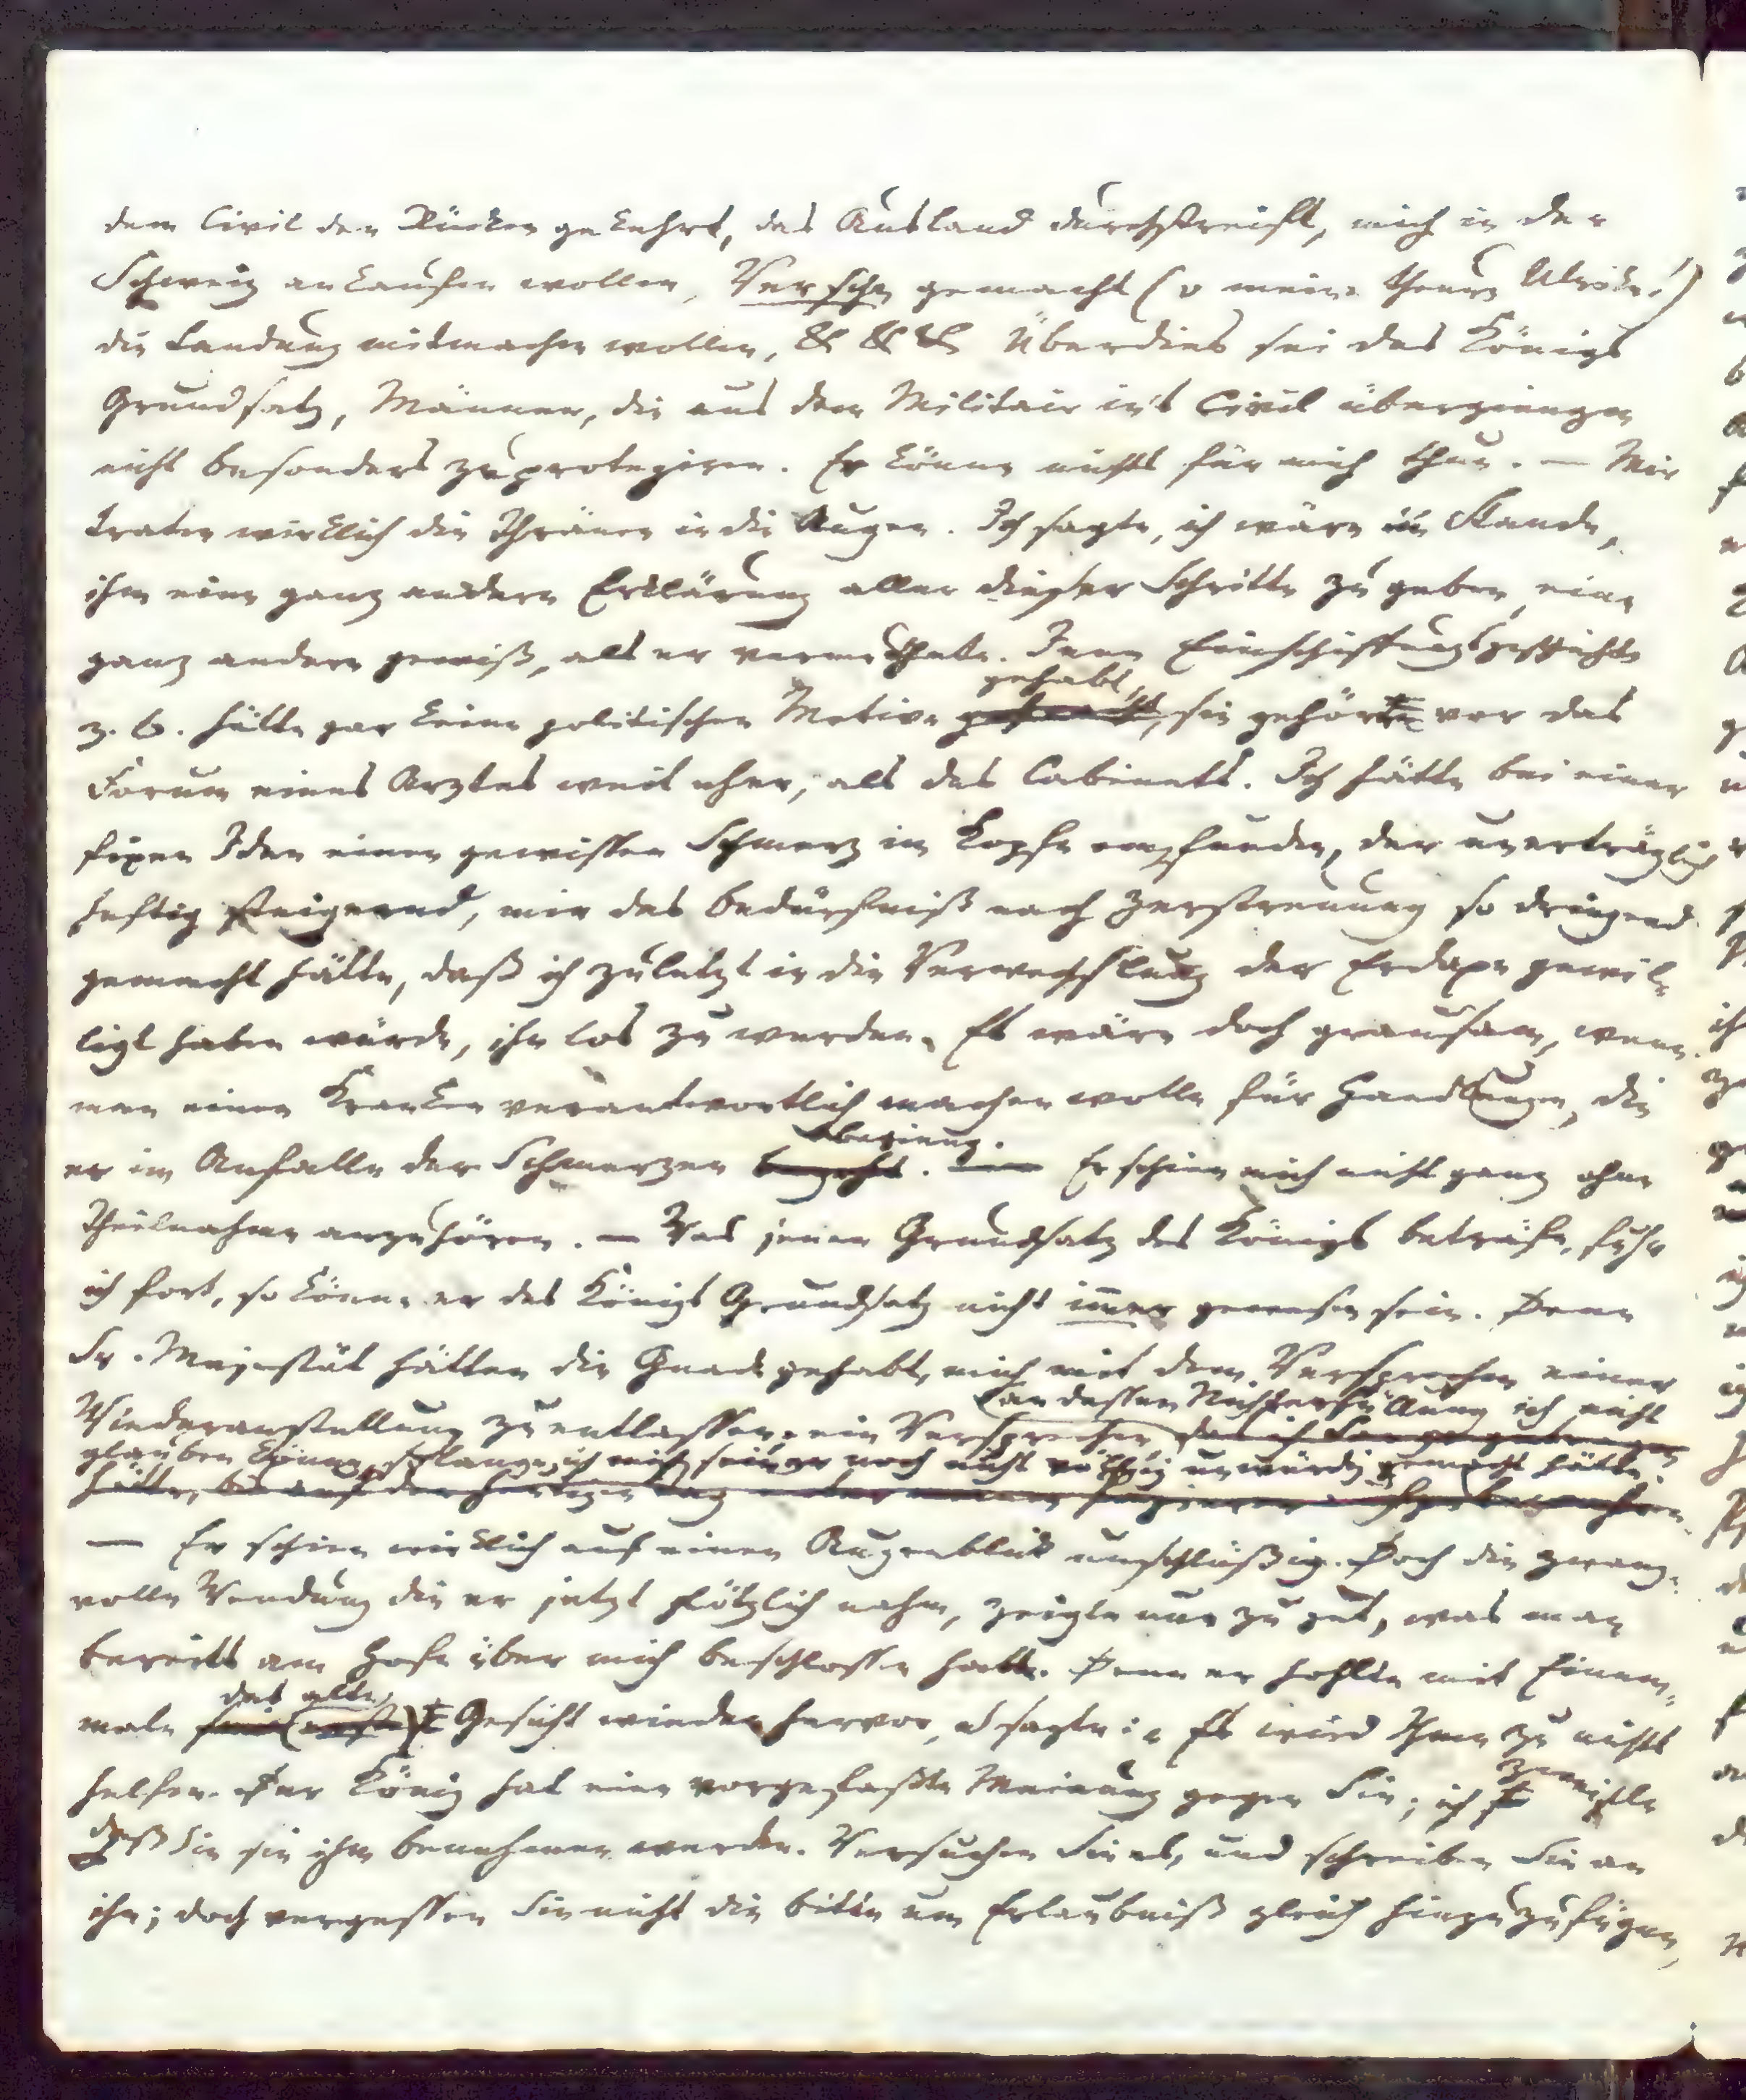 dem Civil den Rücken gekehrt, das Ausland durchstreift, mich in der
Schweiz ankaufen wollen, Versche gemacht (o meine theure Ulrike!)
die Landung mitmachen wollen, &c &c &c Überdies sei des Königs
Grundsatz, Männer, die aus dem Militair ins Civil übergiengen
nicht besonders zu protegiren. Er könne nichts für mich thun. — Mir
traten wirklich die Thränen in die Augen. Ich sagte, ich wäre im Stande,
ihm eine ganz andere Erklärung aller dieser Schritte zu geben, eine
ganz andere gewiß, als er vermuthete. Jene Einschiffungsgeschichte
gehabt,
z. B. hätte gar keine politischen Motive sie gehörte vor das
Forum eines Arztes weit eher, als des Cabinets. Ich hätte bei einer
fixen Idee einen gewissen Schmerz im Kopfe empfunden, der unerträglich
heftig steigernd, mir das Bedürfniß nach Zerstreuung so dringend
gemacht hätte, daß ich zuletzt in die Verwechslung der Erdaxe gewil-
ligt haben würde, ihn los zu werden. Es wäre doch grausam, wenn
man einen Kranken verantwortlich machen wolle für Handlungen, die
begieng.
er im Anfalle der Schmerzen Er schien mich nicht ganz ohne
Theilnahme anzuhören. — Was jenen Grundsatz des Königs beträfe, fuhr
ich fort, so könne er des Königs Grundsatz nicht immer gewesen sein. Denn
Sr. Majestät hätten die Gnade gehabt, mich mit dem Versprechen einer
an dessen Nichterfüllung ich nicht
Wiederanstellung zu entlassen, ein Versprechen,
glauben könne, so lange ich mich seiner noch nicht völlig unwürdig gemacht hätte.
— Er schien wirklich auf einen Augenblick unschlüßig. Doch die zwang-
volle Wendung die er jetzt plötzlich nahm, zeigte nur zu gut, was man
bereits am Hofe über mich beschlossen hatte. Denn er hohlte mit Einem-
das alte
male Gesicht wieder hervor, u sagte: Es wird Ihnen zu nichts
helfen. Der König hat eine vorgefaßte Meinung gegen Sie; ich zweifle
daß Sie sie ihm benehmen werden. Versuchen Sie es, und schreiben Sie an
ihn; doch vergessen Sie nicht die Bitte um Erlaubniß gleich hinzuzufügen,